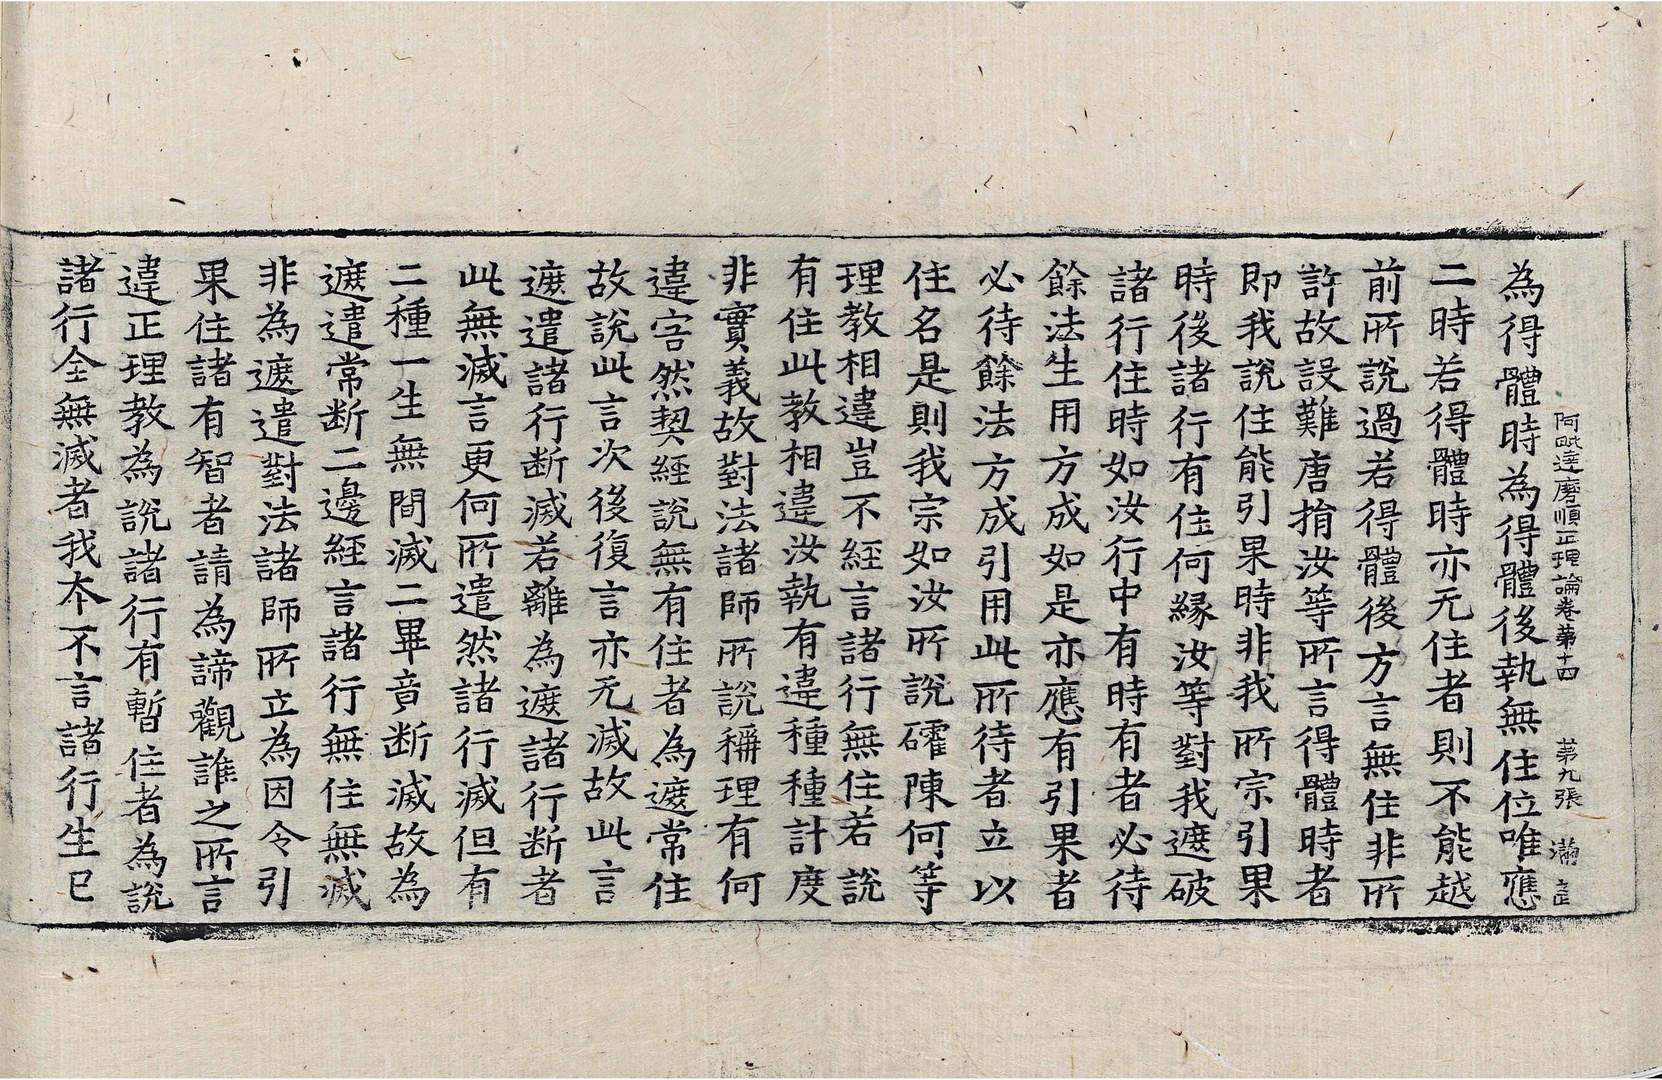 阿毗達磨順正理論卷第十四 第九張 滿
為得體時為得體後執無住位唯應
二時若得體時亦无住者則不能越
前所說過若得體後方言無住非所
許故設難唐捐汝等所言得體時者
即我說住能引果時非我所宗引果
時後諸行有住何緣汝等對我遮破
諸行住時如汝行中有時有者必待
餘法生用方成如是亦應有引果者
必待餘法方成引用此所待者立以
住名是則我宗如汝所說確陳何等
理教相違豈不經言諸行無住若說
有住此教相違汝執有違種種計度
非實義故對法諸師所說稱理有何
違害然契經說無有住者為遮常住
故說此言次後復言亦无滅故此言
遮遣諸行断滅若離為遮諸行断者
此無滅言更何所遣然諸行滅但有
二種一生無間滅二畢竟断滅故為
遮遣常断二邊經言諸行無住無滅
非為遮遣對法諸師所立為因令引
果住諸有智者請為諦觀誰之所言
違正理教為說諸行有暫住者為說
諸行全無滅者我本不言諸行生已